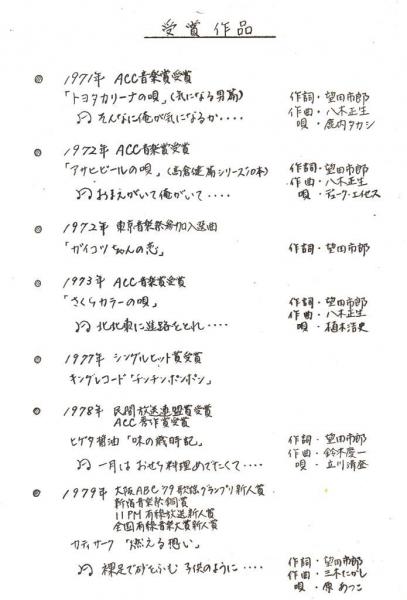 受賞作品
1971年 ACC音楽賞受賞
「トヨタカリーナの唄」(気になる男篇) 作詞・望田市郎
作曲・八木正生
そんなに俺が気になるか・・・・ 唄・鹿内タカシ
1972年 ACC音楽賞受賞
「アサヒビールの唄」(高倉健篇シリーズ10本) 作詞・望田市郎
作曲・八木正生
おまえがいて俺がいて・・・・ 唄・デューク・エイセス
1972年 東京音楽祭参加入選曲
「ガイコツちゃんの恋」 作詞・望田市郎
1973年 ACC音楽賞受賞
「さくらカラーの唄」 作詞・望田市郎
作曲・八木正生
北北東に進路をとれ・・・・ 唄・植木浩史
1977年 シングルヒット賞受賞
キングレコード「チンチンポンポン」
1978年 民間放送連盟賞受賞
ACC秀作賞受賞
ヒゲタ醤油「味の歳時記」 作詞・望田市郎
作曲・鈴木慶一
一月は おせち料理めでたくて・・・・ 唄・立川清登
1979年 大阪ABC'79歌謡グランプリ新人賞
新宿音楽祭銅賞
11PM有線放送新人賞
全国有線音楽大賞新人賞
カティサーク 「燃える想い」 作詞・望田市郎
作曲・三木たかし
裸足で砂をふむ 子供のように・・・・ 唄・原 あつこ